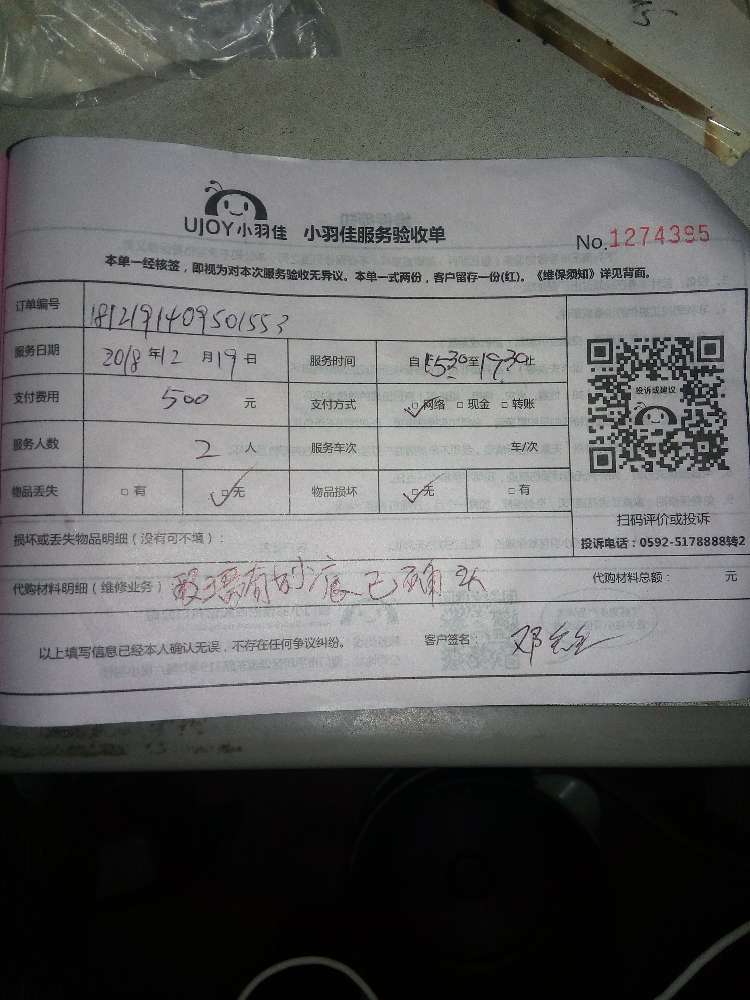 UJOY小羽佳 小羽佳服务验收单 No.1274395
本单一经核签，即视为对本次服务验收无异议。本单一式两份，客户留存一份(红)。《维保须知》详见背面。
订单编号 1812191409501553
服务日期 2018 年 12 月 19 日 服务时间 自 15:30 至 19:30 止
支付费用 500 元 支付方式 ☑网络 □现金 □转账
投诉或建议
服务人数 2 人 服务车次 车/次
物品丢失 □有 ☑无 物品损坏 ☑无 □有
扫码评价或投诉
损坏或丢失物品明细（没有可不填）：
投诉电话：0592-5178888转2
代购材料明细（维修业务） 玻璃有划痕已确认 代购材料总额： 元
以上填写信息已经本人确认无误，不存在任何争议纠纷。 客户签名： 邓先生